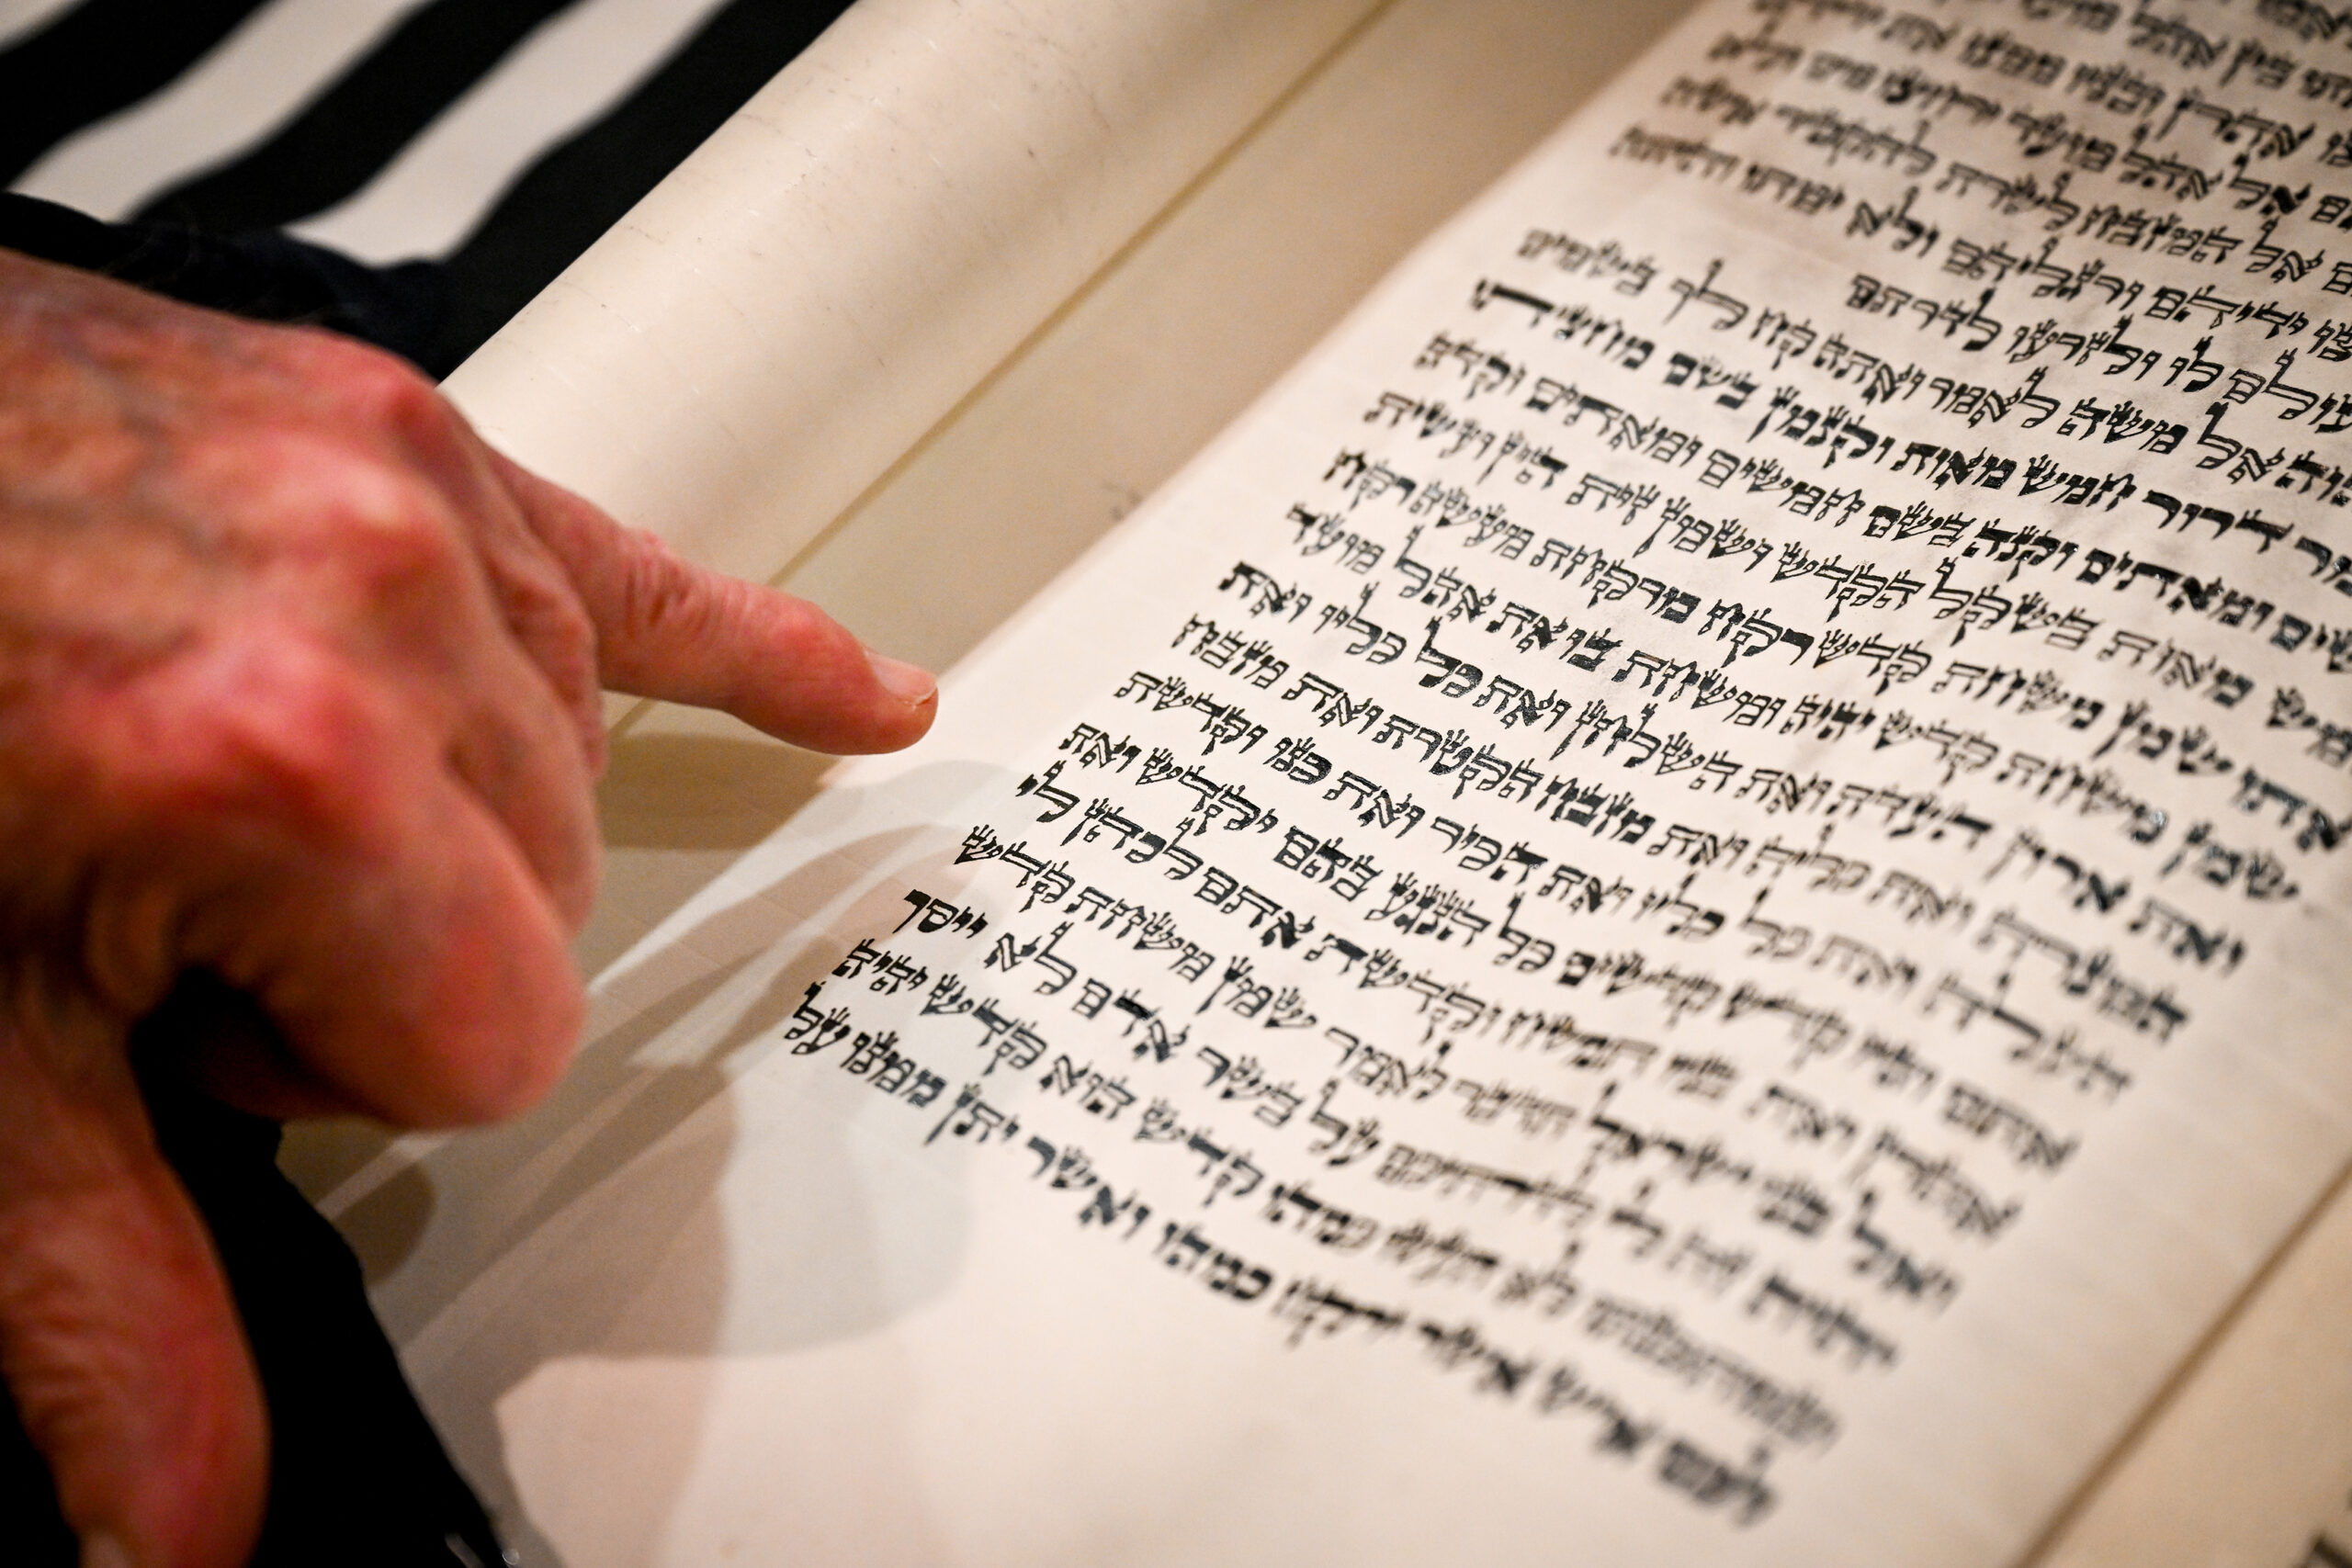 בין אהל
אהרן ובניו ממנו את ידיהם
אל אהל מועד ירחצו מים ולא
אל המזבח לשרת להקטיר אשה
ידיהם ורגליהם ולא ימתו והיתה
עולם לו ולזרעו לדרתם
אל משה לאמר ואתה קח לך בשמים
מר דרור חמש מאות וקנמן בשם מחציתו
ומאתים וקנה בשם חמשים ומאתים וקדה
מאות בשקל הקדש ושמן זית הין ועשית
אתו שמן משחת קדש רקח מרקחת מעשה רקח
שמן משחת קדש יהיה ומשחת בו את אהל מועד
ואת ארון העדת ואת השלחן ואת כל כליו ואת
המנרה ואת כליה ואת מזבח הקטרת ואת מזבח
העלה ואת כל כליו ואת הכיר ואת כנו וקדשת
אתם והיו קדש קדשים כל הנגע בהם יקדש ואת
אהרן ואת בניו תמשח וקדשת אתם לכהן לי
ואל בני ישראל תדבר לאמר שמן משחת קדש
יהיה זה לי לדרתיכם על בשר אדם לא ייסך
ובמתכנתו לא תעשו כמהו קדש הוא קדש יהיה
לכם איש אשר ירקח כמהו ואשר יתן ממנו על